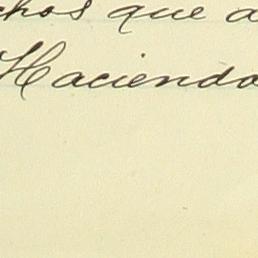 chos que a
Haciendo